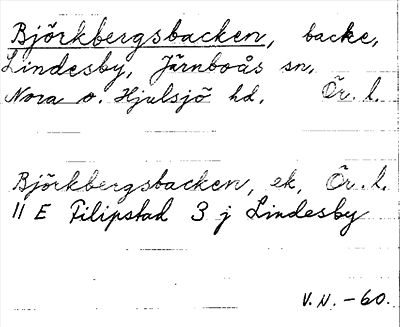 Björkbergsbacken, backe,
Lindesby, Järnboås sn,
Nora o. Hjulsjö hd. Ör. l.
Björkbergsbacken, ek, Ör. l.
11 E Filipstad 3 j Lindesby
V.N. -60.